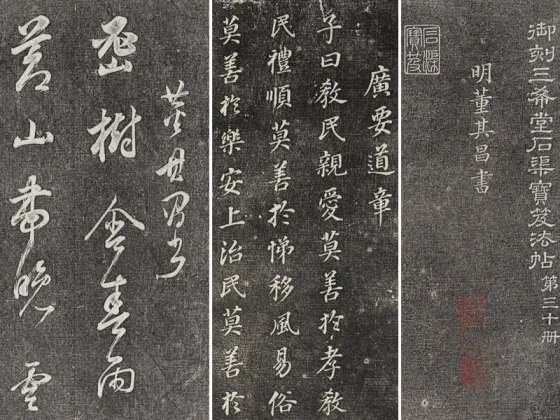 御刻三希堂石渠寶笈法帖 第三十册
明董其昌書
石渠寶笈
廣要道章
子曰教民親愛莫善於孝教
民禮順莫善於悌移風易俗
莫善於樂安上治民莫善於
董其昌書
密樹含春雨
山帶晚雲